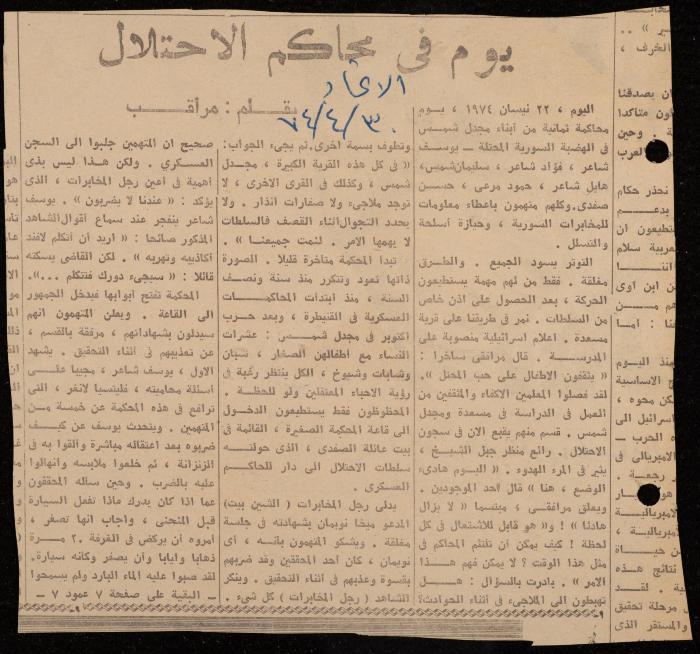 يوم في محاكم الاحتلال
الاتحاد
٧٤/٤/٣٠
بقلم : مراقب
اليوم ، ٢٢ نيسان ١٩٧٤ ، يوم
محاكمة ثمانية من أبناء مجدل شمس
في الهضبة السورية المحتلة ـ يوسف
شاعر ، فؤاد شاعر ، سليمان شمس،
هايل شاعر ، حمود مرعي ، حسن
صفدي.وكلهم متهمون باعطاء معلومات
للمخابرات السورية ، وحيازة أسلحة
والتسلل .
التوتر يسود الجميع . والطرق
مغلقة . فقط من لهم مهمة يستطيعون
الحركة ، بعد الحصول على اذن خاص
من السلطات . نمر في طريقنا على قرية
مسعدة . اعلام اسرائيلية منصوبة على
المدرسة . قال مرافقي ساخرا :
« يثقفون الاطفال على حب المحتل ».
لقد فصلوا المعلمين الاكفاء والمثقفين من
العمل في الدراسة في مسعدة ومجدل
شمس . قسم منهم يقبع الان في سجون
الاحتلال . رائع منظر جبل الشيخ ،
يثير في المرء الهدوء . « اليوم هادىء
الوضع ، هنا » قال أحد الموجودين .
ويعلق مرافقي ، مبتسما « لا يزال
هادئا » ! و« هو قابل للاشتعال في كل
لحظة ! كيف يمكن أن تلتئم المحاكم في
مثل هذا الوقت ؟ لا يمكن فهم هذا
الامر » . بادرت بالسؤال : هل
تهبطون الى الملاجىء في أثناء الحوادث؟
وتطوف بسمة أخرى.ثم يجيء الجواب:
« في كل هذه القرية الكبيرة ، مجدل
شمس ، وكذلك في القرى الاخرى ، لا
توجد ملاجىء ولا صفارات انذار . ولا
يحدد التجوال أثناء القصف فالسلطات
لا يهمها الامر . لنمت جميعنا » .
تبدا المحكمة متأخرة قليلا . الصورة
ذاتها تعود وتتكرر منذ سنة ونصف
السنة ، منذ ابتدأت المحاكمات
العسكرية في القنيطرة ، وبعد حرب
اكتوبر في مجدل شمس : عشرات
النساء مع أطفالهن الصغار ، شبان
وشابات وشيوخ ، الكل ينتظر رغبة في
رؤية الاحباء المعتقلين ولو للحظة .
المحظوظون فقط يستطيعون الدخول
الى قاعة المحكمة الصغيرة ، القائمة في
بيت عائلة الصفدي ، الذي حولته
سلطات الاحتلال الى دار للحاكم
العسكري .
يدلي رجل المخابرات ( الشين بيت)
المدعو ميخا نويمان بشهادته في جلسة
مغلقة . ويشكو المتهمون بأنه ، أي
نويمان ، كان أحد المحققين وقد ضربهم
بقسوة وعذبهم في أثناء التحقيق . وينكر
الشاهد ( رجل المخابرات ) كل شيء .
صحيح ان المتهمين جلبوا الى السجن
العسكري . ولكن هذا ليس بذي
أهمية في أعين رجل المخابرات ، الذي
يؤكد : « عندنا لا يضربون » . يوسف
شاعر ينفجر عند سماع أقوال الشاهد
المذكور صائحا : « اريد أن أتكلم لافند
أكاذيبه ونهريه » . لكن القاضي يسكته
قائلا : « سيجيء دورك فتتكلم ...».
المحكمة تفتح أبوابها فيدخل الجمهور
الى القاعة . ويعلن المتهمون انهم
سيدلون بشهاداتهم ، مرفقة بالقسم ،
عن تعذيبهم في أثناء التحقيق . يشهد
الاول ، يوسف شاعر ، مجيبا على
أسئلة محاميته ، فليتسيا لانغر ، التي
ترافع في هذه المحكمة عن خمسة من
المتهمين . ويتحدث يوسف عن كيف
ضربوه بعد اعتقاله مباشرة والقوا به في
الزنزانة ، ثم خلعوا ملابسه وانهالوا
عليه بالضرب . وحين سأله المحققون
عما اذا كان يدرك ماذا تفعل السيارة
قبل المنحنى ، وأجاب انها تصفر ،
أمروه أن يركض في الغرفة ٢٠ مرة
ذهابا وايابا وأن يصفر وكأنه سيارة.
لقد صبوا عليه الماء البارد ولم يسمحوا
ـ البقية على صفحة ٧ عمود ٧ ـ
الخرف ،
ان يصدقنا
ون متأكدا
. وحين
لعرب
نحذر حكام
يدعم
تطيعون ان
عربية سلام
أننا
من
نا : أما
منذ اليوم
الاساسية
كن محوه ،
اسرائيل الى
ه الحرب ـ
الامبريالي في
رجعية .
الامبريالية ،
حياة
نتائج هذه
. لقد
مرحلة تحقيق
والمستقر الذي